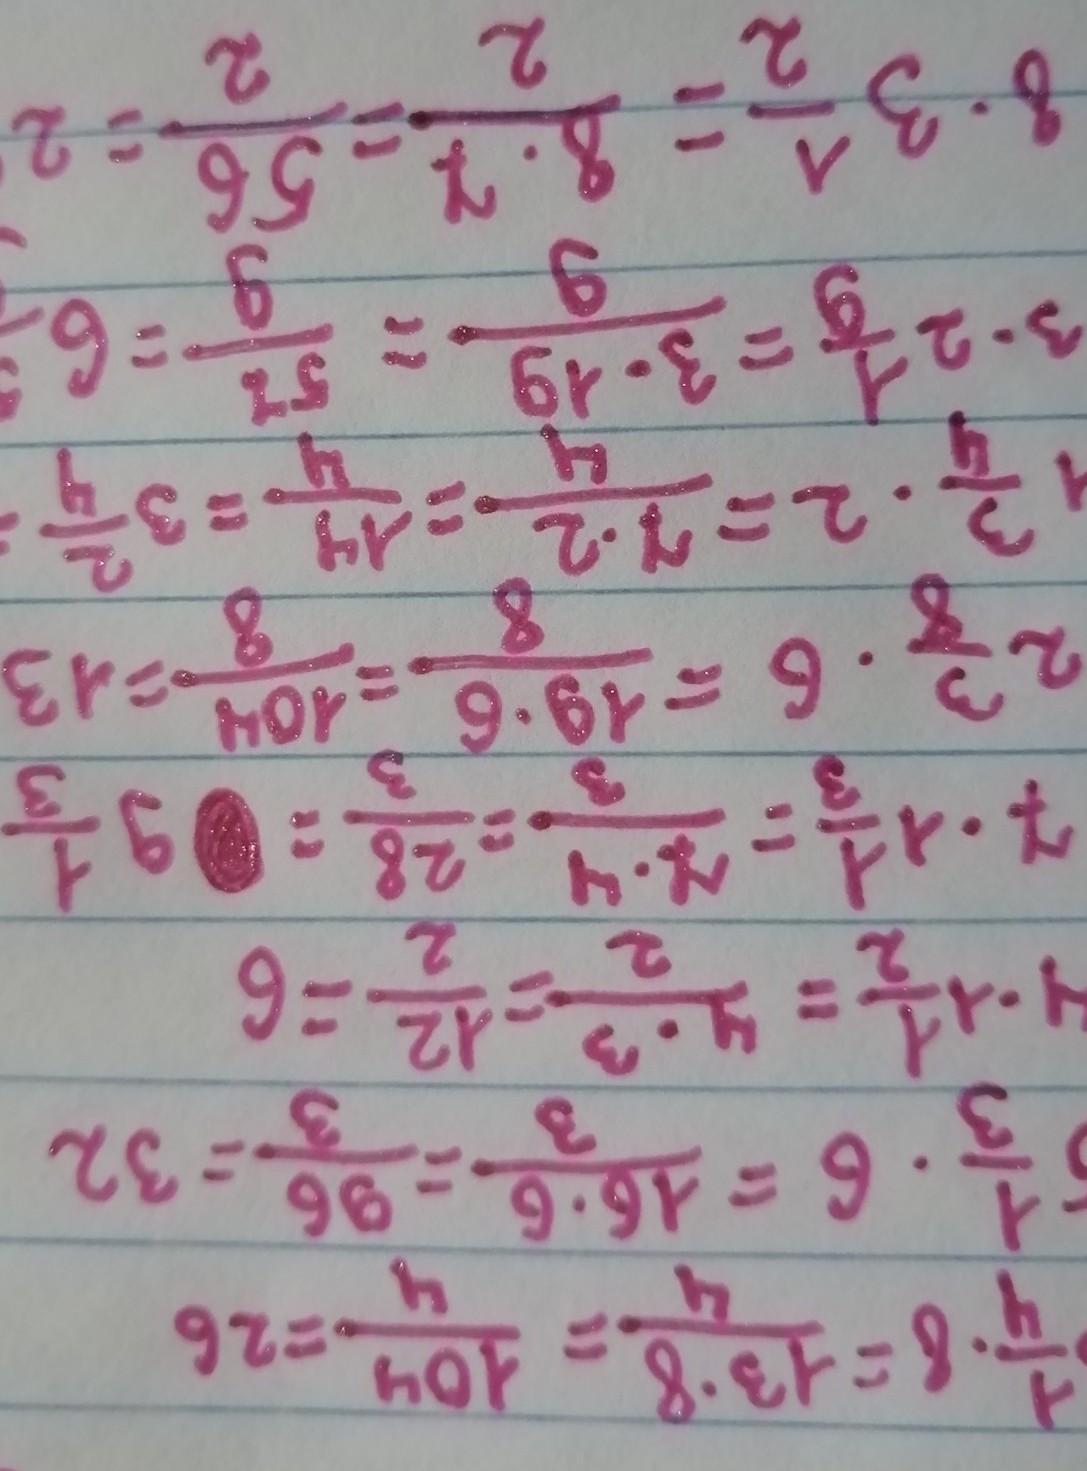 1/4 · 8 = 13·8/4 = 104/4 = 26
5 1/3 · 6 = 16·6/3 = 96/3 = 32
4 · 1 1/2 = 4·3/2 = 12/2 = 6
7 · 1 1/3 = 7·4/3 = 28/3 = 9 1/3
2 3/8 · 6 = 19·6/8 = 104/8 = 13
1 3/4 · 2 = 7·2/4 = 14/4 = 3 2/4 =
3 · 2 1/9 = 3·19/9 = 57/9 = 6
8 · 3 1/2 = 8·7/2 = 56/2 = 2